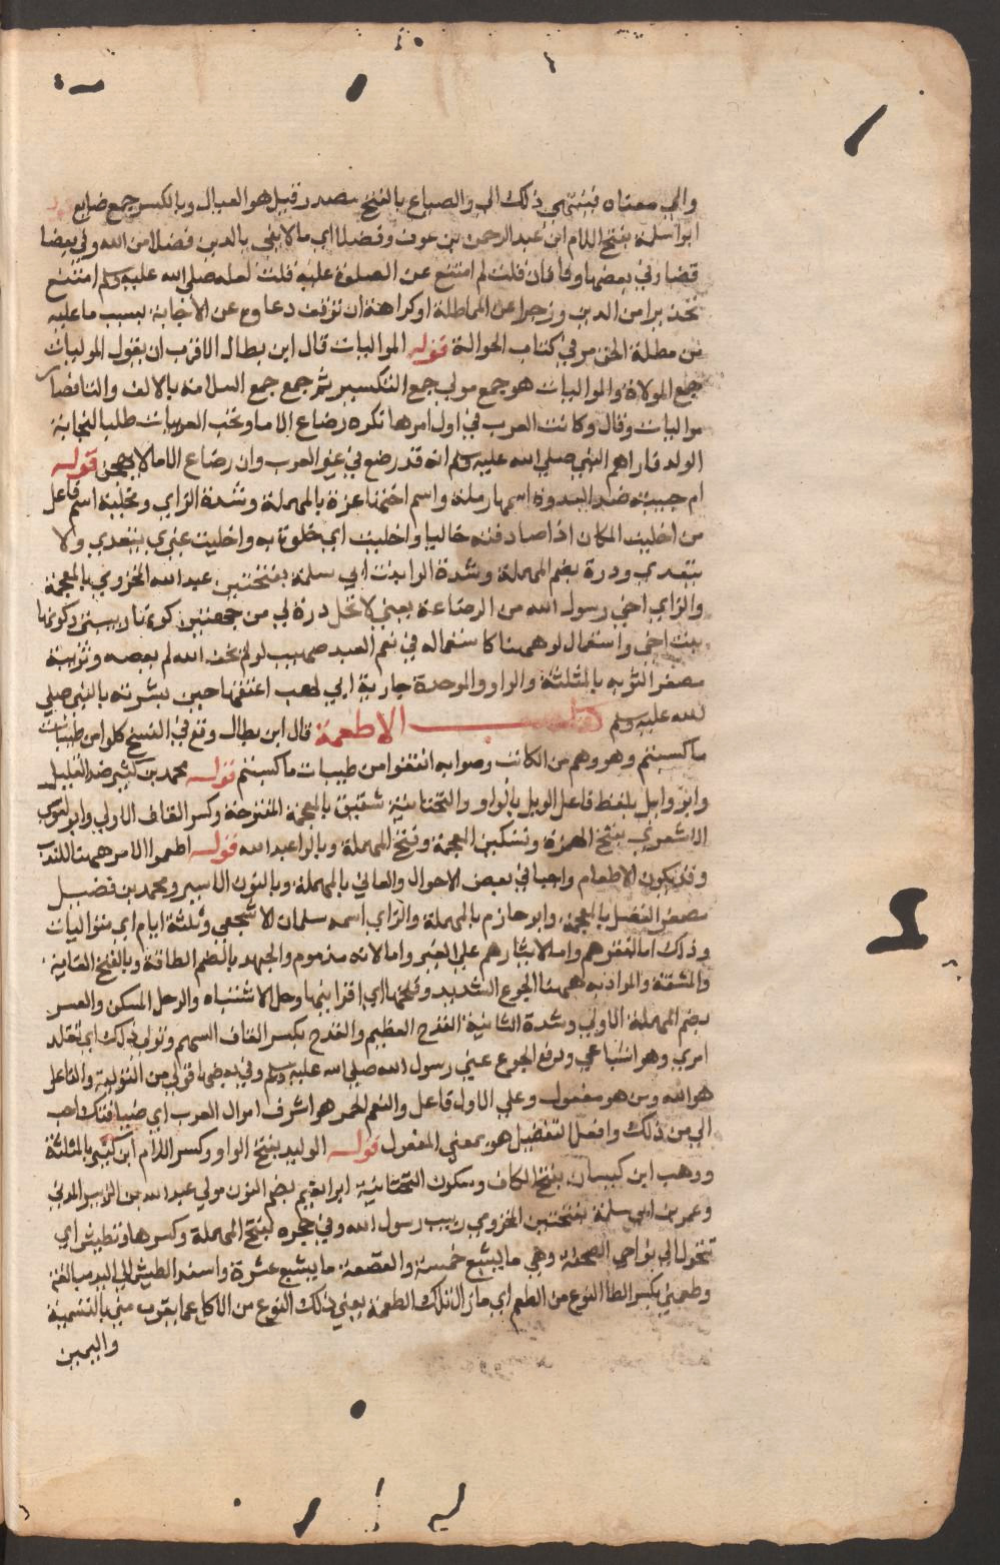 والي معناه فينتهي ذلك الي والضياع بالفتح مصدر قيل هو العيال وبالكسر جمع ضايع
ابو اسلمة بفتح اللام ابن عبد الرحمن بن عوف وفضلا اي مالا يفي بالدين فضلا من الله وفي بعضا
قضا وفي بعضها وفا فان قلت لم امتنع عن الصلوة عليه قلت لعله صلي الله عليه وسلم امتنع
تحذيرا من الدين وزجرا عن المماطلة او كراهة ان توقف دعاوه عن الاجابة بسبب ما عليه
من مظلة الحق مر في كتاب الحوالة قوله المواليات قال ابن بطال الاقرب ان يقول الموليات
جمع المولاة والمواليات هو جمع مولي جمع التكسير ثم جمع جمع السلامة بالالف والتا فصار
مواليات وقال وكانت العرب في اول امرها تكره رضاع الاما وتحب العربيات طلبا لنجابة
الولد فاراهم النبي صلي الله عليه وسلم انه قد رضع في غير العرب وان رضاع الاما لا يهجن قوله
ام حبيبة ضد العدوة اسمها رملة واسم اختها عزة بالمهملة وشدة الزاي ومخلية اسم فاعل
من اخليت المكان اذا صادفته خاليا واخليت اي خلوت به واخليت غيري يتعدي ولا
يتعدي ودرة بضم المهملة وشدة الرا بنت ابي سلمة بفتحتين عبد الله المخزومي بالمعجمة
والزاي اخي رسول الله من الرضاعة يعني لا تحل درة لي من جهتين كونها ربيبتي وكونها
بنت اخي واستعمال لو ههنا كاستعماله في نعم العبد صهيب لو لم يخف الله لم يعصه وثويبة
مصغر الثوبه بالمثلثة والواو والموحدة جارية ابي لهب اعتقها حين بشرته بالنبي صلي
الله عليه وسلم كتاب الاطعمة قال ابن بطال وقع في النسخ كلوا من طيبات
ما كسبتم وهو وهم من الكاتب وصوابه انفقوا من طيبات ما كسبتم قوله محمد بن كثير ضد القليل
وابو وايل بلفظ فاعل الويل بالواو والتحتانية شقيق بالمعجمة المفتوحة وكسر القاف الاولي وابو موسي
الاشعري بفتح الهمزة وتسكين المعجمة وفتح المهملة وبالرا عبد الله قوله اطعموا الامر ههنا للندب
وقد يكون الاطعام واجبا في بعض الاحوال والعاني بالمهملة وبالنون الاسير ومحمد بن فضيل
مصغر الفضل بالمعجمة وابو حازم بالمهملة والزاي اسمه سلمان الاشجعي وثلثة ايام اي متواليات
وذلك اما لفقرهم واما لايثارهم علي الغير واما لانه مذموم والجهد بالضم الطاقة وبالفتح الغاية
والمشقة والمراد به ههنا الجوع الشديد وفتحها اي اقرانيها وحل الاشتباه والرحل المسكن والعس
بضم المهملة الاولي وشدة الثانية القدح العظيم والقدح بكسر القاف السهم وتولي ذلك اي تقلد
امري وهو اشباعي ودفع الجوع عني رسول الله صلي الله عليه وسلم وفي بعضها تولي من التولية والفاعل
هو الله ومن هو مفعول وعلي الاول فاعل والنعم الحمر هو اشرف اموال العرب اي ضيافتك احب
الي من ذلك وافعل التفضيل هو بمعني المفعول قوله الوليد بفتح الواو وكسر اللام ابن كثير بالمثلثة
ووهب ابن كيسان بفتح الكاف وسكون التحتانية ابو نعيم بضم النون مولي عبد الله بن الزبير المدني
وعمر بن ابي سلمة بفتحتين المخزومي ربيب رسول الله وفي حجره بفتح المهملة وكسرها وتطيش اي
تتحول الي نواحي الصحفة وهي ما يشبع خمسة والقصعة ما يشبع عشرة واسند الطيش الي اليد مبالغة
وطعمتي بكسر الطا النوع من الطعم اي ما زالت تلك الطعمة يعني ذلك النوع من الاكل مما يقرب مني بالتسمية
واليمين